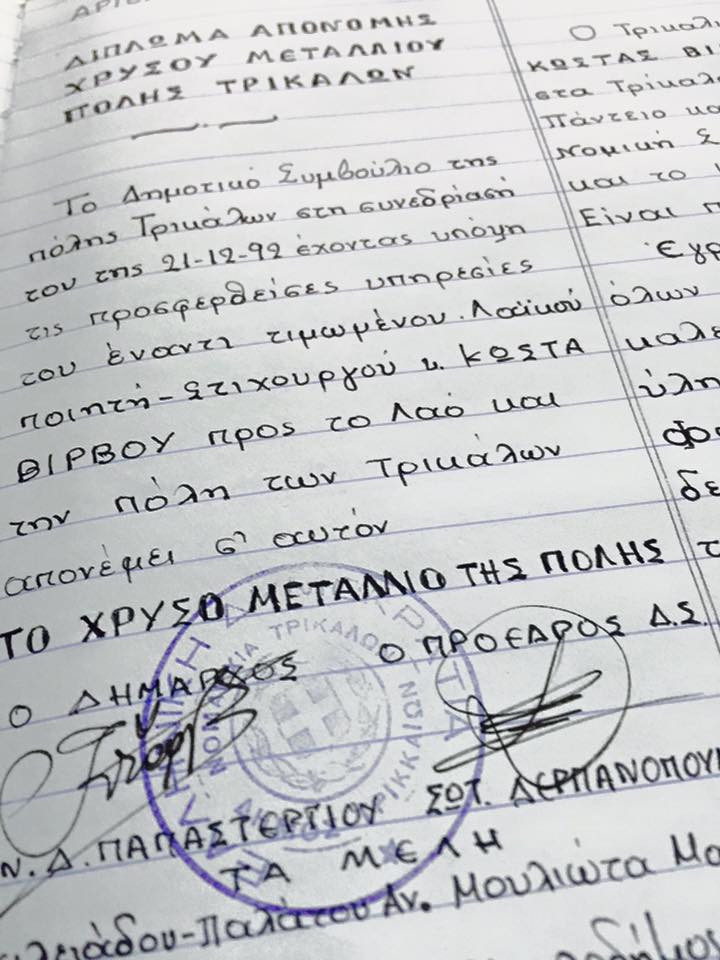 ΔΙΠΛΩΜΑ ΑΠΟΝΟΜΗΣ
ΧΡΥΣΟΥ ΜΕΤΑΛΛΙΟΥ
ΠΟΛΗΣ ΤΡΙΚΑΛΩΝ
Το Δημοτικό Συμβούλιο της
πόλης Τρικάλων στη συνεδρίασή
του της 21-12-92 έχοντας υπόψη
τις προσφερθείσες υπηρεσίες
του έναντι τιμωμένου Λαϊκού
ποιητή-Στιχουργού κ. ΚΩΣΤΑ
ΒΙΡΒΟΥ προς το Λαό και
την πόλη των Τρικάλων
απονέμει σ' αυτόν
ΤΟ ΧΡΥΣΟ ΜΕΤΑΛΛΙΟ ΤΗΣ ΠΟΛΗΣ
Ο ΔΗΜΑΡΧΟΣ Ο ΠΡΟΕΔΡΟΣ Δ.Σ.
Ν. Δ. ΠΑΠΑΣΤΕΡΓΙΟΥ ΣΩΤ. ΔΕΡΠΑΝΟΠΟΥ
ΤΑ ΜΕΛΗ
-Παλάτου Αν. Μουλιώτα Μα
Ο Τρικαλ
ΚΩΣΤΑΣ ΒΙ
στα Τρίκαλ
Πάντειο κα
Νομική Σ
και το
Είναι π
Εγρ
όλων
καλε
ύλη
φο
δε
τ
ΝΟΜΑΡΧΙΑ ΤΡΙΚΑΛΩΝ
ΔΗΜΟΣ ΤΡΙΚΚΑΙΩΝ